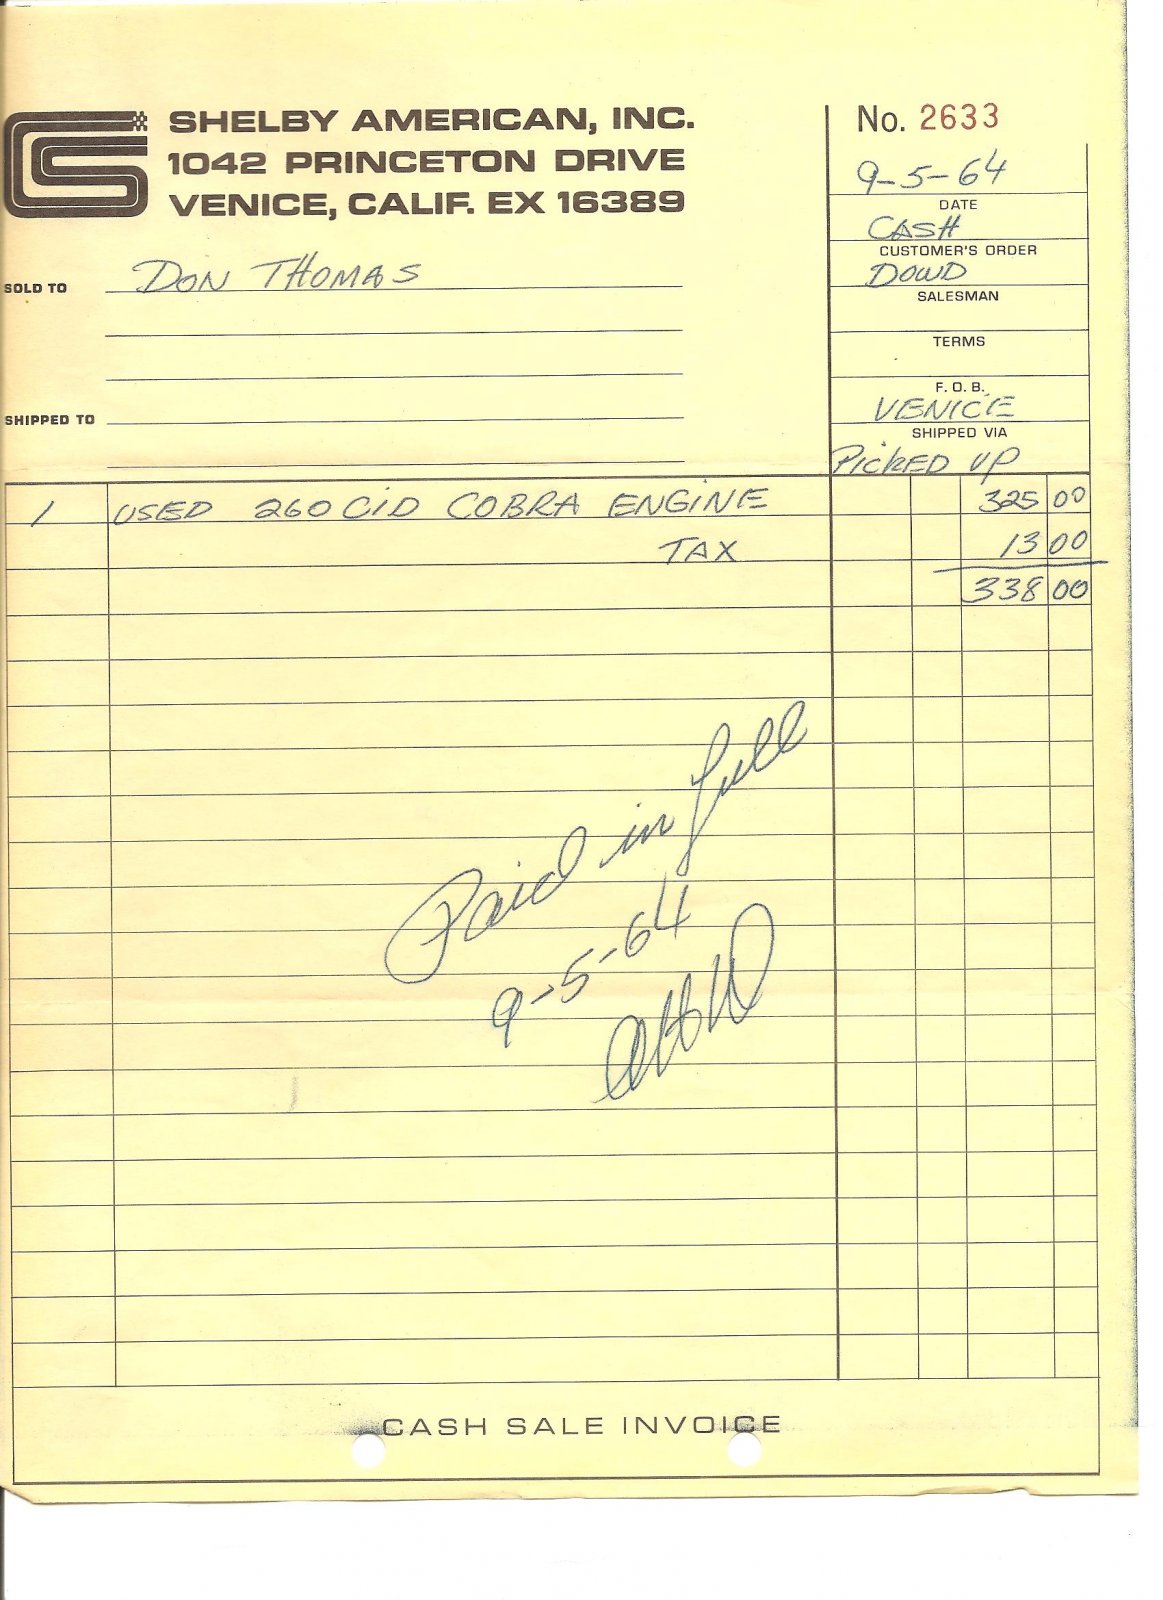 SHELBY AMERICAN, INC.
1042 PRINCETON DRIVE
VENICE, CALIF. EX 16389
No. 2633
9-5-64
DATE
CASH
CUSTOMER'S ORDER
DOWD
SALESMAN
TERMS
F. O. B.
VENICE
SHIPPED VIA
PICKED UP
SOLD TO DON THOMAS
SHIPPED TO
1 USED 260 CID COBRA ENGINE 325 00
TAX 13 00
338 00
Paid in full
9-5-64
CASH SALE INVOICE